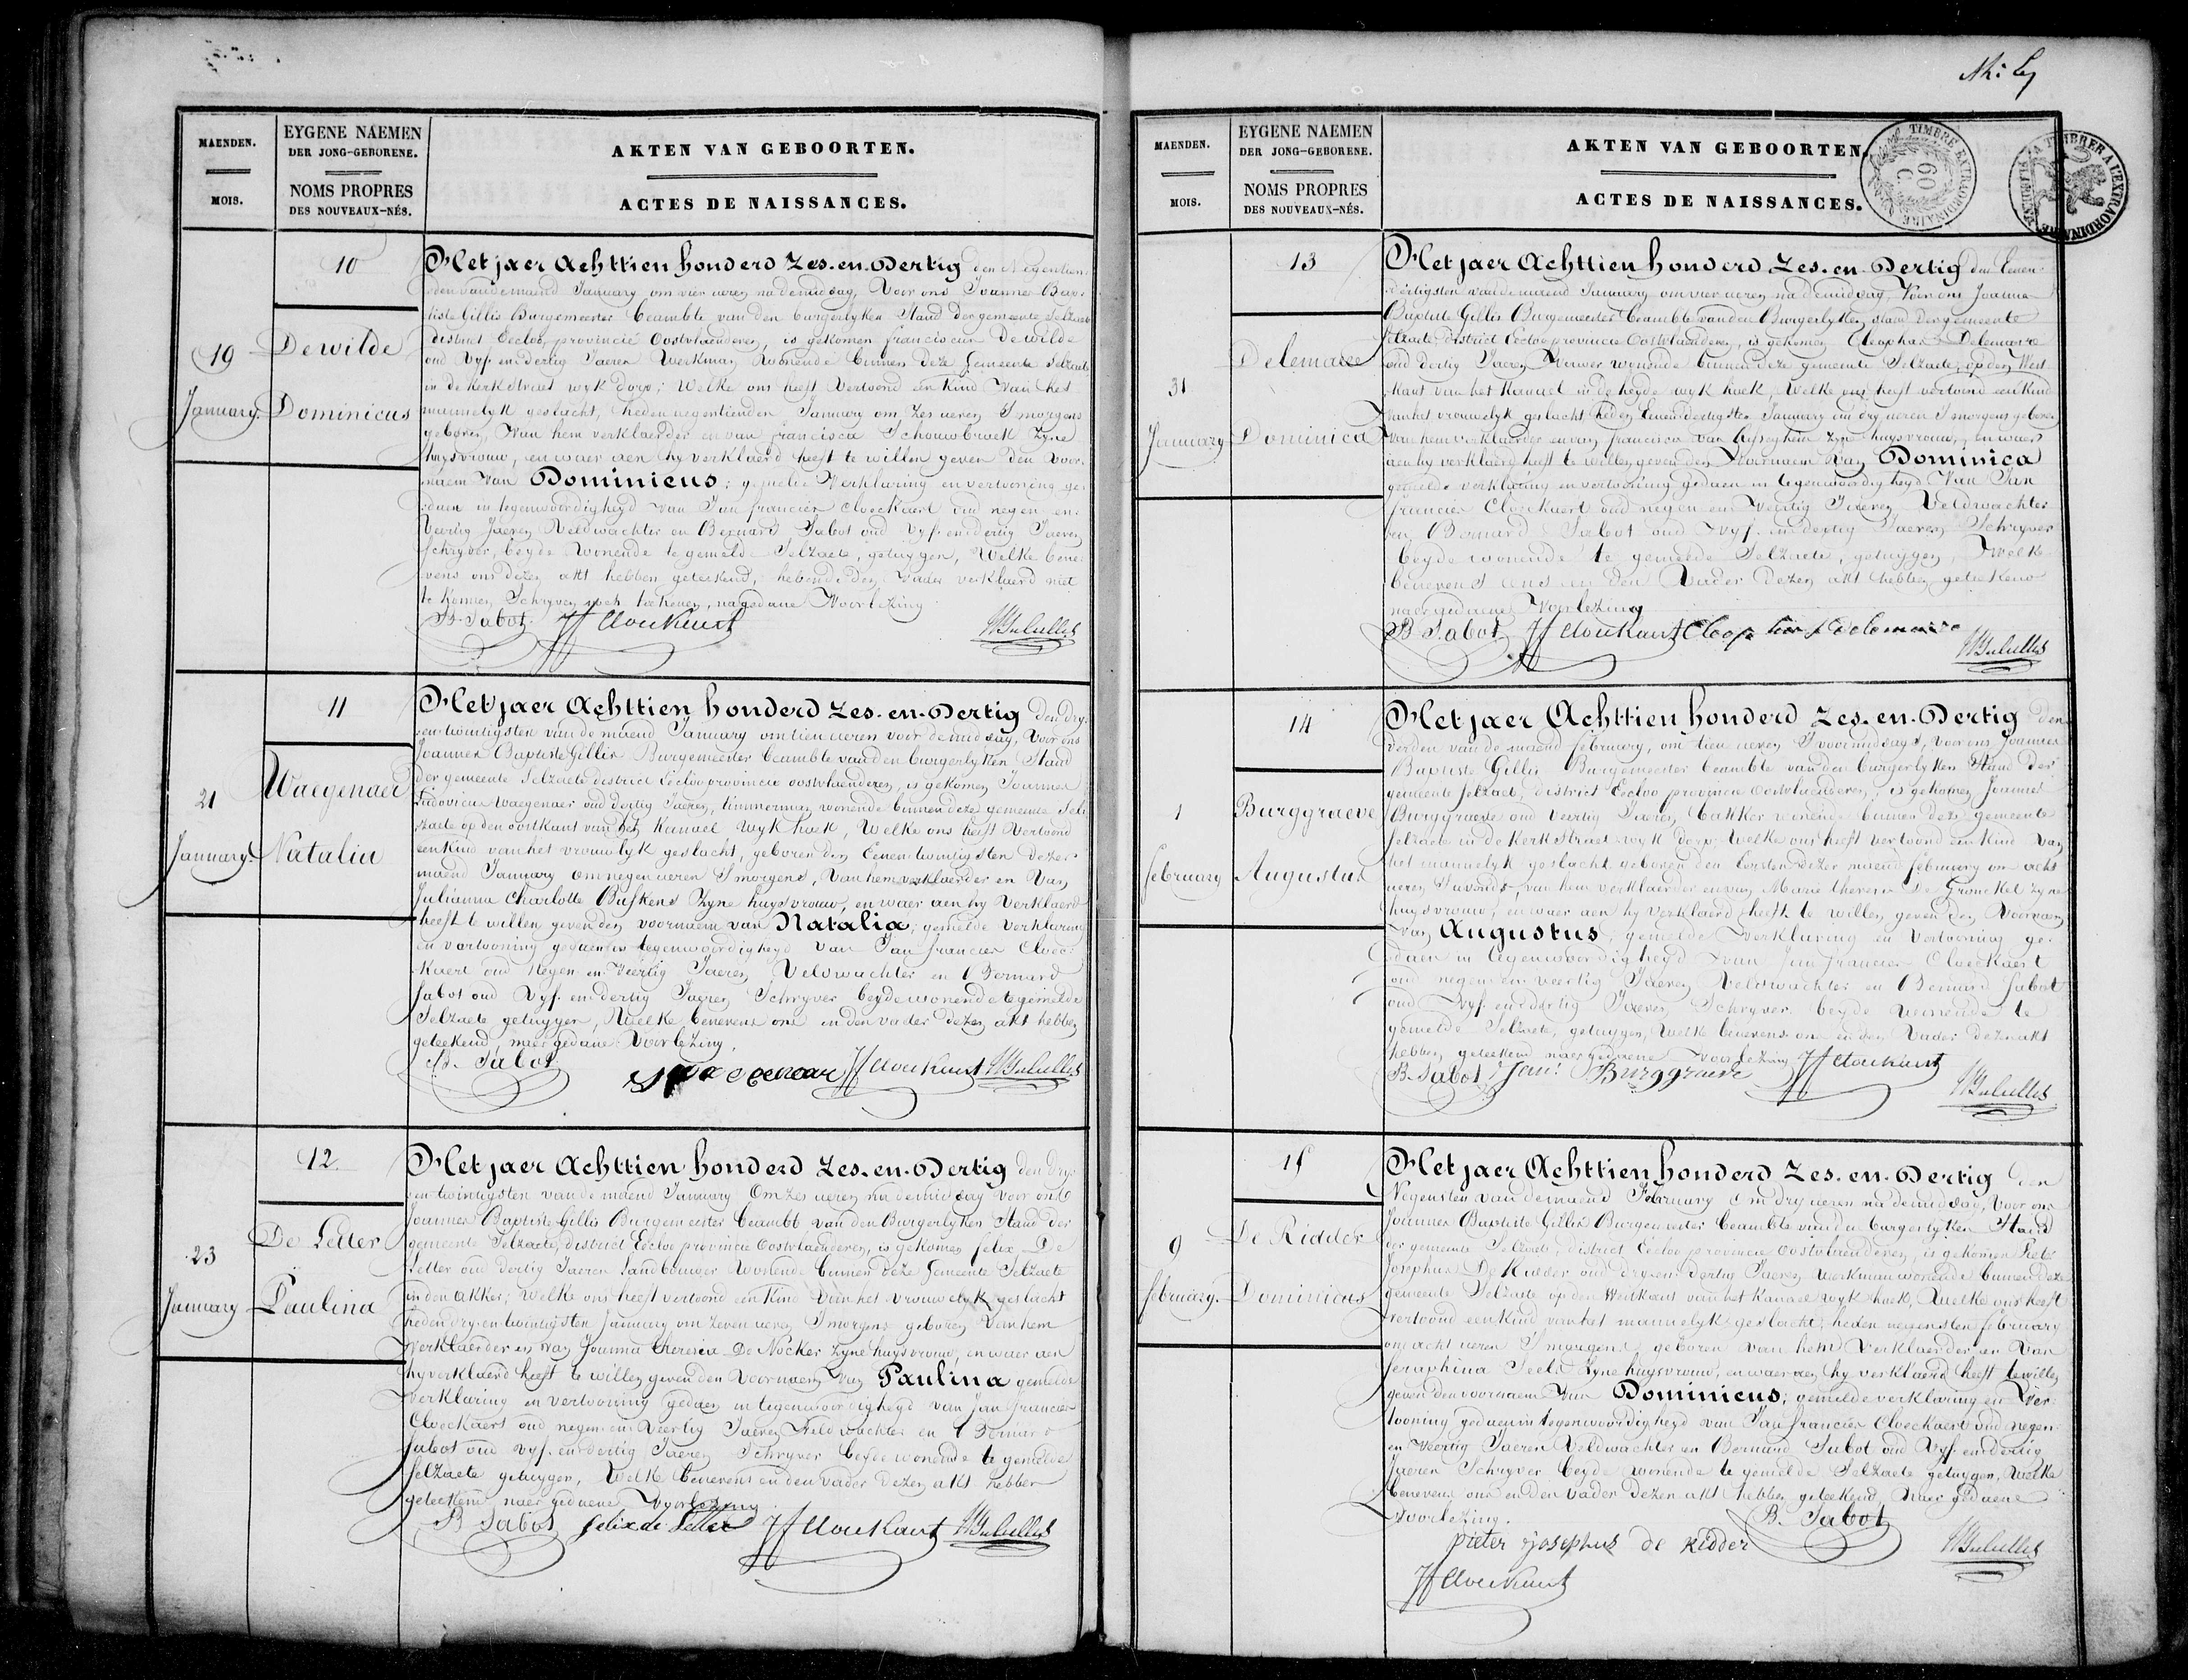 MAENDEN.
MOIS.
EYGENE NAEMEN
DER JONG-GEBORENE.
NOMS PROPRES
DES NOUVEAUX-NÉS.
AKTEN VAN GEBOORTEN.
ACTES DE NAISSANCES.
10
19
January.
Dewilde
Dominicus
Het jaer Achttien honderd Zes-en-Dertig den Negentien-
den van de maend January om vier ueren na de middag, Voor ons Joannes Bap-
tiste Gillis Burgemeester beambte van den burgerlyken Stand der gemeente Selzaete
district Eecloo, provincie Oostvlaenderen, is gekomen franciscus De wilde
oud Vyf-en-dertig Jaeren Werkman Wonende binnen deze Gemeente Selzaete
in de kerkstraet wyk dorp; Welke ons heeft Vertoond een Kind Van het
mannelyk geslacht, heden negentienden January om zes ueren S'morgens
geboren, Van hem verklaerder en van francisca Schouwbroek Zyne
huysvrouw, en waer aen hy verklaerd heeft te willen geven den Voor-
naem Van Dominicus; gemelde Verklaring en vertooning ge-
daen in tegenwoordigheyd van Jan francies Cloeckaert oud negen-en-
Veertig Jaeren Veldwachter en Bernard Sabot oud Vyf-en-dertig Jaeren
Schryver, beyde Wonende te gemelde Selzaete, getuygen, Welke bene-
vens ons dezen akt hebben geteekend, hebbende den Vader verklaerd niet
te konnen Schryven noch teekenen, na gedane Voorlezing
B. Sabot JF Cloeckaert
11
21
January.
Waegenaer
Natalia
Het jaer Achttien honderd Zes-en-Dertig Den dry-
en-twintigsten van de maend January om tien ueren voor de middag, Voor ons
Joannes Baptiste Gillis Burgemeester beambte van den burgerlyken Stand
der gemeente Selzaete district Eecloo provincie oostvlaenderen, is gekomen Joannes
Ludovicus Waegenaer oud dertig Jaeren, timmerman, wonende binnen deze gemeente Sel-
zaete op den oostkant van het Kanael Wyk hoek, Welke ons heeft Vertoond
een Kind van het vrouwelyk geslacht, geboren den Eenen-twintigsten dezer
maend January om negen ueren S'morgens, Van hem verklaerder en Van
Julianna Charlotte Buskens Zyne huysvrouw, en waer aen hy Verklaerd
heeft te willen geven den voornaem van Natalia; gemelde Verklaring
en vertooning gedaen in tegenwoordigheyd Van Jan francies Cloec-
kaert oud Negen-en-Veertig Jaeren Veldwachter en Bernard
Sabot oud Vyf-en-dertig Jaeren Schryver beyde wonende te gemelde
Selzaete getuygen, Welke benevens ons en den vader dezen akt hebben
geteekend, naer gedane Voorlezing.
B. Sabot JF Cloeckaert
12.
23
January
De Letter
Paulina
Het jaer Achttien honderd Zes-en-Dertig den dry-
en-twintigsten van de maend January Om zes ueren na de middag voor ons
Joannes Baptiste Gillis Burgemeester beambte van den Burgerlyken Stand der
gemeente Selzaete, district Eecloo provincie Oostvlaenderen, is gekomen felix De
Letter oud dertig Jaeren Landbouwer Wonende binnen deze Gemeente Selzaete
in den akker; Welke ons heeft vertoond een Kind Van het vrouwelyk geslacht
heden dry-en-twintigsten January om zeven ueren S'morgens geboren Van hem
Verklaerder en Van Joanna Theresia De Nocker Zyne huysvrouw, en waer aen
hy verklaerd heeft te willen geven den Voornaem Van Paulina gemelde
Verklaring en vertooning gedaen in tegenwoordigheyd van Jan francies
Cloeckaert oud negen-en-Veertig Jaeren Veldwachter en Bernard
Sabot oud Vyf-en-dertig Jaeren Schryver beyde wonende te gemelde
Selzaete getuygen, Welke benevens en den vader dezen akt hebben
geteekend naer gedaene Voorlezing.
B Sabot felix de Letter JF Cloeckaert
MAENDEN.
MOIS.
EYGENE NAEMEN
DER JONG-GEBORENE.
NOMS PROPRES
DES NOUVEAUX-NÉS.
AKTEN VAN GEBOORTEN.
ACTES DE NAISSANCES.
TIMBRE EXTRAORDINAIRE
60 C.
A TIMBRER A L'EXTRAORDINAIRE
13
31
January
Delemaere
Dominica
Het jaer Achttien honderd Zes-en-Dertig den Eenen-
dertigsten van de maend January om vier ueren na de middag, Voor ons Joannes
Baptiste Gillis Burgemeester beambte van den Burgerlyken stand der gemeente
Selzaete, district Eecloo provincie Oostvlaenderen, is gekomen Cleophas Delemaere
oud dertig Jaeren, wonende binnen deze gemeente Selzaete, op den West-
kant van het Kanael in de heyde wyk hoek, Welke ons heeft vertoond een Kind
Van het vrouwelyk geslacht, heden Eenen dertigsten January om dry ueren S'morgens geboren
Van hem verklaerder en van francisca Van zyne huysvrouw, en waer
aen hy verklaerd heeft te willen geven den Voornaem Van Dominica
gemelde verklaring en vertooning gedaen in tegenwoordigheyd Van Jan
francies Cloeckaert oud negen-en-Veertig Jaeren, Veldwachter
en, Bernard Sabot oud Vyf-en-dertig Jaeren Schryver
beyde wonende te gemelde Selzaete, getuygen, Welke
benevens ons en den Vader Dezen akt hebben geteekend
naer gedaene Voorlezing
B Sabot JF Cloeckaert Cleophas delemaere
14
1
february
Burggraeve
Augustus
Het jaer Achttien honderd Zes-en-Dertig den
derden van de maend february, om tien ueren S'voormiddags, voor ons Joannes
Baptiste Gillis Burgemeester beambte van den burgerlyken Stand der
gemeente Selzaete, district Eecloo provincie Oostvlaenderen, is gekomen Joannes
Burggraeve oud Veertig Jaeren, bakker wonende binnen deze gemeente
Selzaete in de Kerkstraet wyk dorp; Welke ons heeft vertoond een Kind Van
het mannelyk geslacht geboren den Eersten dezer maend february om acht
ueren S'avonds, van hem verklaerder en van Marie theresia De Gronckel zyne
huysvrouw, en waer aen hy Verklaerd heeft te willen geven den Voornaem
Van Augustus, gemelde verklaring en Vertooning ge-
daen in tegenwoordigheyd van Jan francies Cloeckaert
oud negen-en-veertig Jaeren Veldwachter en Bernard Sabot
oud Vyf-en-dertig Jaeren, Schryver beyde wonende te
gemelde Selzaete, getuygen, Welke benevens ons en den Vader dezen akt
hebben geteekend naer gedaene voorlezing JF Cloeckaert
B. Sabot Jan: Burggraeve
15
9
february.
De Ridder
Dominicus
Het jaer Achttien honderd Zes-en-Dertig den
Negensten van de maend February om dry ueren na de middag, Voor ons
Joannes Baptiste Gillis Burgemeester beambte van den burgerlyken Stand
der gemeente Selzaete, district Eecloo provincie oostvlaenderen, is gekomen Pieter
Josephus De Ridder oud dry-en-dertig Jaeren, Werkman wonende binnen deze
gemeente Selzaete op den Westkant van het Kanael wyk hoek, Welke ons heeft
vertoond een kind van het mannelyk geslacht, heden negensten february
om acht ueren S'morgens geboren van hem Verklaerder en Van
Seraphina Seels Zyne huysvrouw, en waer aen hy verklaerd heeft te willen
geven den voornaem Van Dominicus; gemelde verklaring en Ver-
tooning gedaen in tegenwoordigheyd van Jan francies Cloeckaert oud negen-
en-Veertig Jaeren Veldwachter en Bernard Sabot oud Vyf-en-dertig
Jaeren Schryver beyde wonende te gemelde Selzaete getuygen, Welke
benevens ons en den vader dezen akt hebben geteekend, Naer gedaene
Voorlezing. B. Sabot
pieter josephus de Ridder
JF Cloeckaert